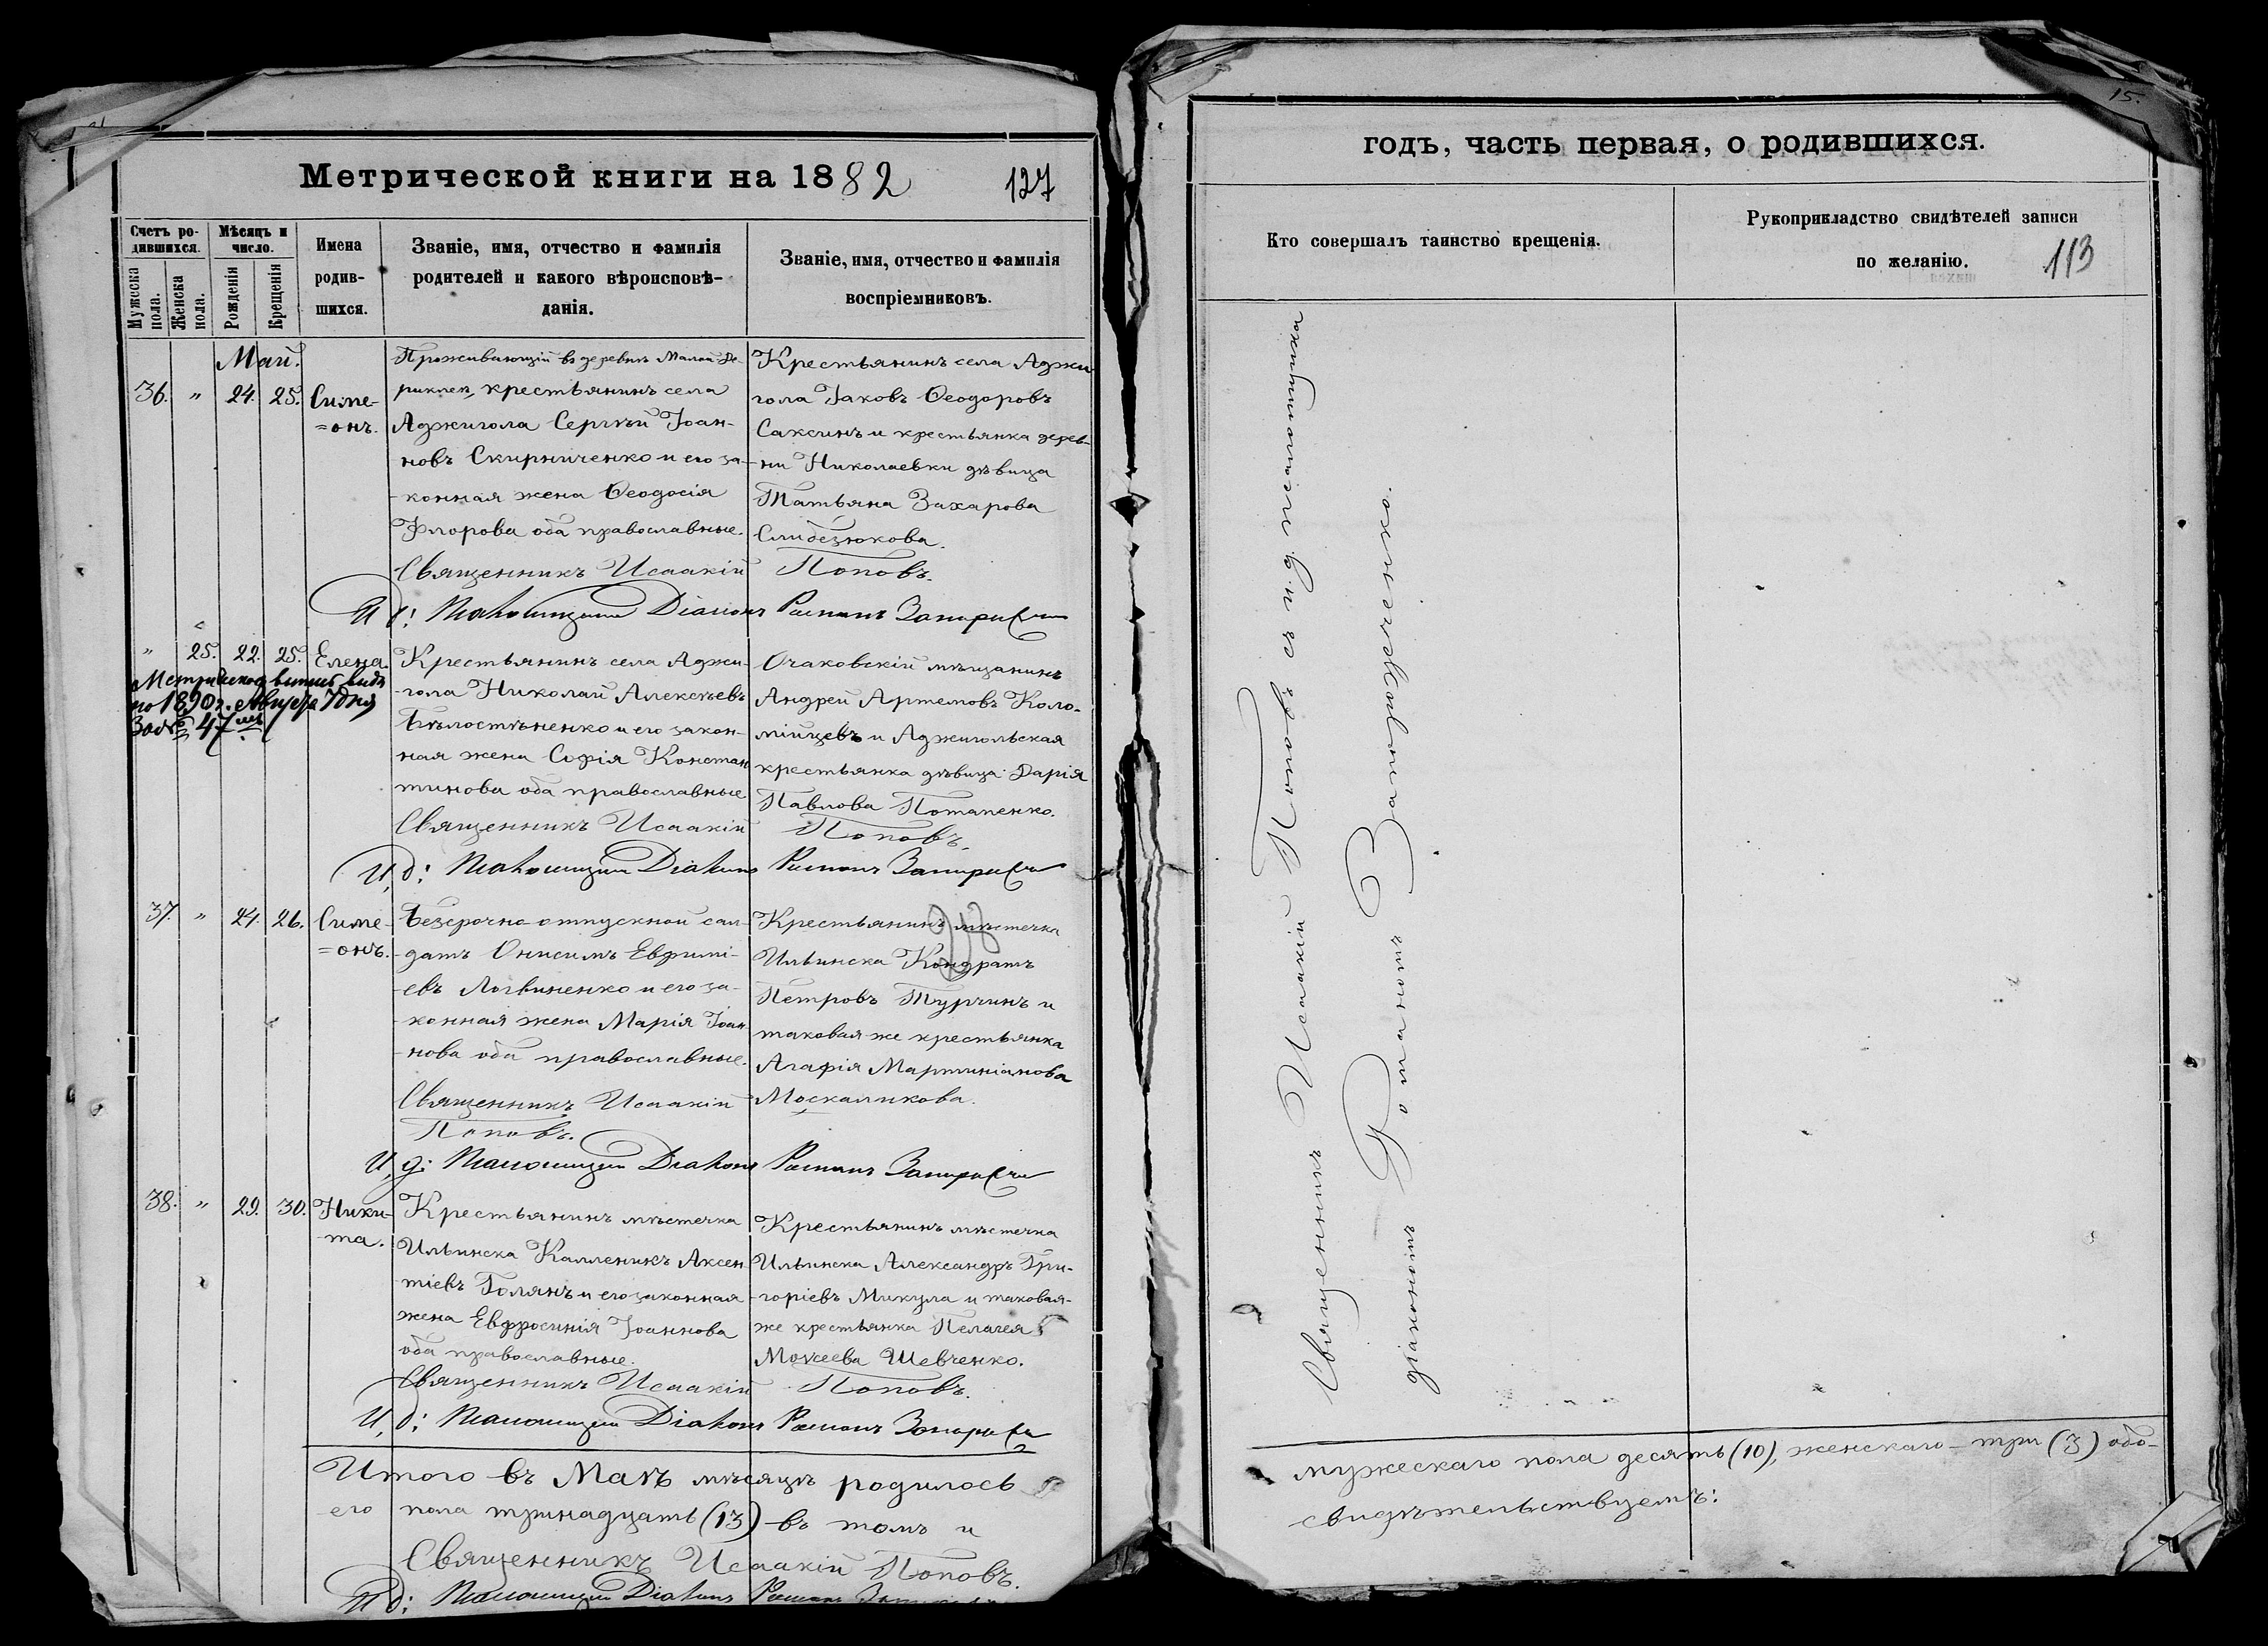 Метрической книги на 1882
127
Счетъ родившихся.
Мѣсяцъ и число.
Мужеска пола.
Женска пола.
Рожденія
Крещенія
Имена родившихся.
Званіе, имя, отчество и фамилія
родителей и какого вѣроисповѣ-
данія.
Званіе, имя, отчество и фамилія
воспріемниковъ.
Май.
36. " 24. 25. Симе-
=онъ.
Проживающій въ деревнѣ Малой Де-
крестьянинъ села
Аджигола Сергѣй Іоан-
новъ Скирниченко и его за-
-конная жена Ѳеодосія
Флорова оба православные.
Крестьянинъ села Аджи-
гола Іаковъ Ѳеодоровъ
Саксинъ и крестьянка дерев-
ни Николаевки дѣвица
Татьяна Захарова
Слибезюкова.
Священникъ Исаакій Поповъ.
И д: Діаконъ Романъ
" 25. 22. 25. Елена.
по 1890 г. Августа 7 дня
За № 47
Крестьянинъ села Аджи-
-гола Николай Алексѣевъ
Бѣлостѣненко и его закон-
ная жена Софія Констан
тинова оба православные
Очаковскій мѣщанинъ
Андрей Артемовъ Коло-
мійцевъ и Аджигольская
крестьянка дѣвица Дарія
Павлова Потапенко.
Священникъ Исаакій Поповъ.
И, д: Діаконъ Романъ
37. " 24. 26. Симе-
=онъ.
Безсрочно-отпускной сол-
-датъ Онисимъ Евфимі-
-евъ Логвиненко и его за-
-конная жена Марія Іоан
-нова оба православные.
Крестьянинъ мѣстечка
Ильинска Кондратъ
Петровъ Турчинъ и
таковая же крестьянка
Агафія Мартиніанова
Москаликова.
Священникъ Исаакій
Поповъ.
И, д: Діаконъ Романъ
38. " 29. 30. Ники-
-та.
Крестьянинъ мѣстечка
Ильинска Каленикъ Аксен
тіевъ Голянъ и его законная
жена Евфросинія Іоаннова
оба православные.
Крестьянинъ мѣстечка
Ильинска Александръ Гри-
-горіевъ Микула и таковая-
же крестьянка Пелагея
Мокеева Шевченко.
Священникъ Исаакій Поповъ.
И, д: Діаконъ Романъ
Итого въ Маѣ мѣсяцѣ родилось
его пола тринадцать (13) въ томъ и
Священникъ Исаакій Поповъ.
И д: Діаконъ Романъ
15.
годъ, часть первая, о родившихся.
Кто совершалъ таинство крещенія.
Рукоприкладство свидѣтелей записи
по желанію.
113
Священникъ Исаакій Поповъ съ и. д. псаломщика
діакономъ Романомъ Запорожченко.
мужескаго пола десять (10), женскаго - три (3) обо-
свидѣтельствуемъ: